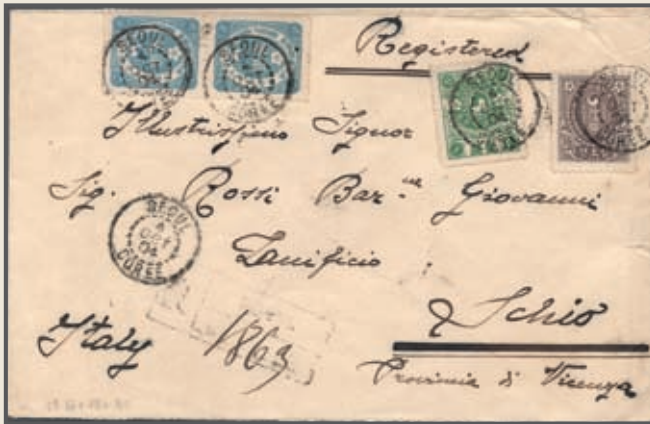 Registered
SEOUL
COREE
SEOUL
COREE
SEOUL
SEOUL
Illustrissimo Signor
Sig. Rossi Bar.ne Giovanni
SEOUL
4
OCT
04
COREE
Lanificio
Schio
Italy 1863
Provincia di Vicenza